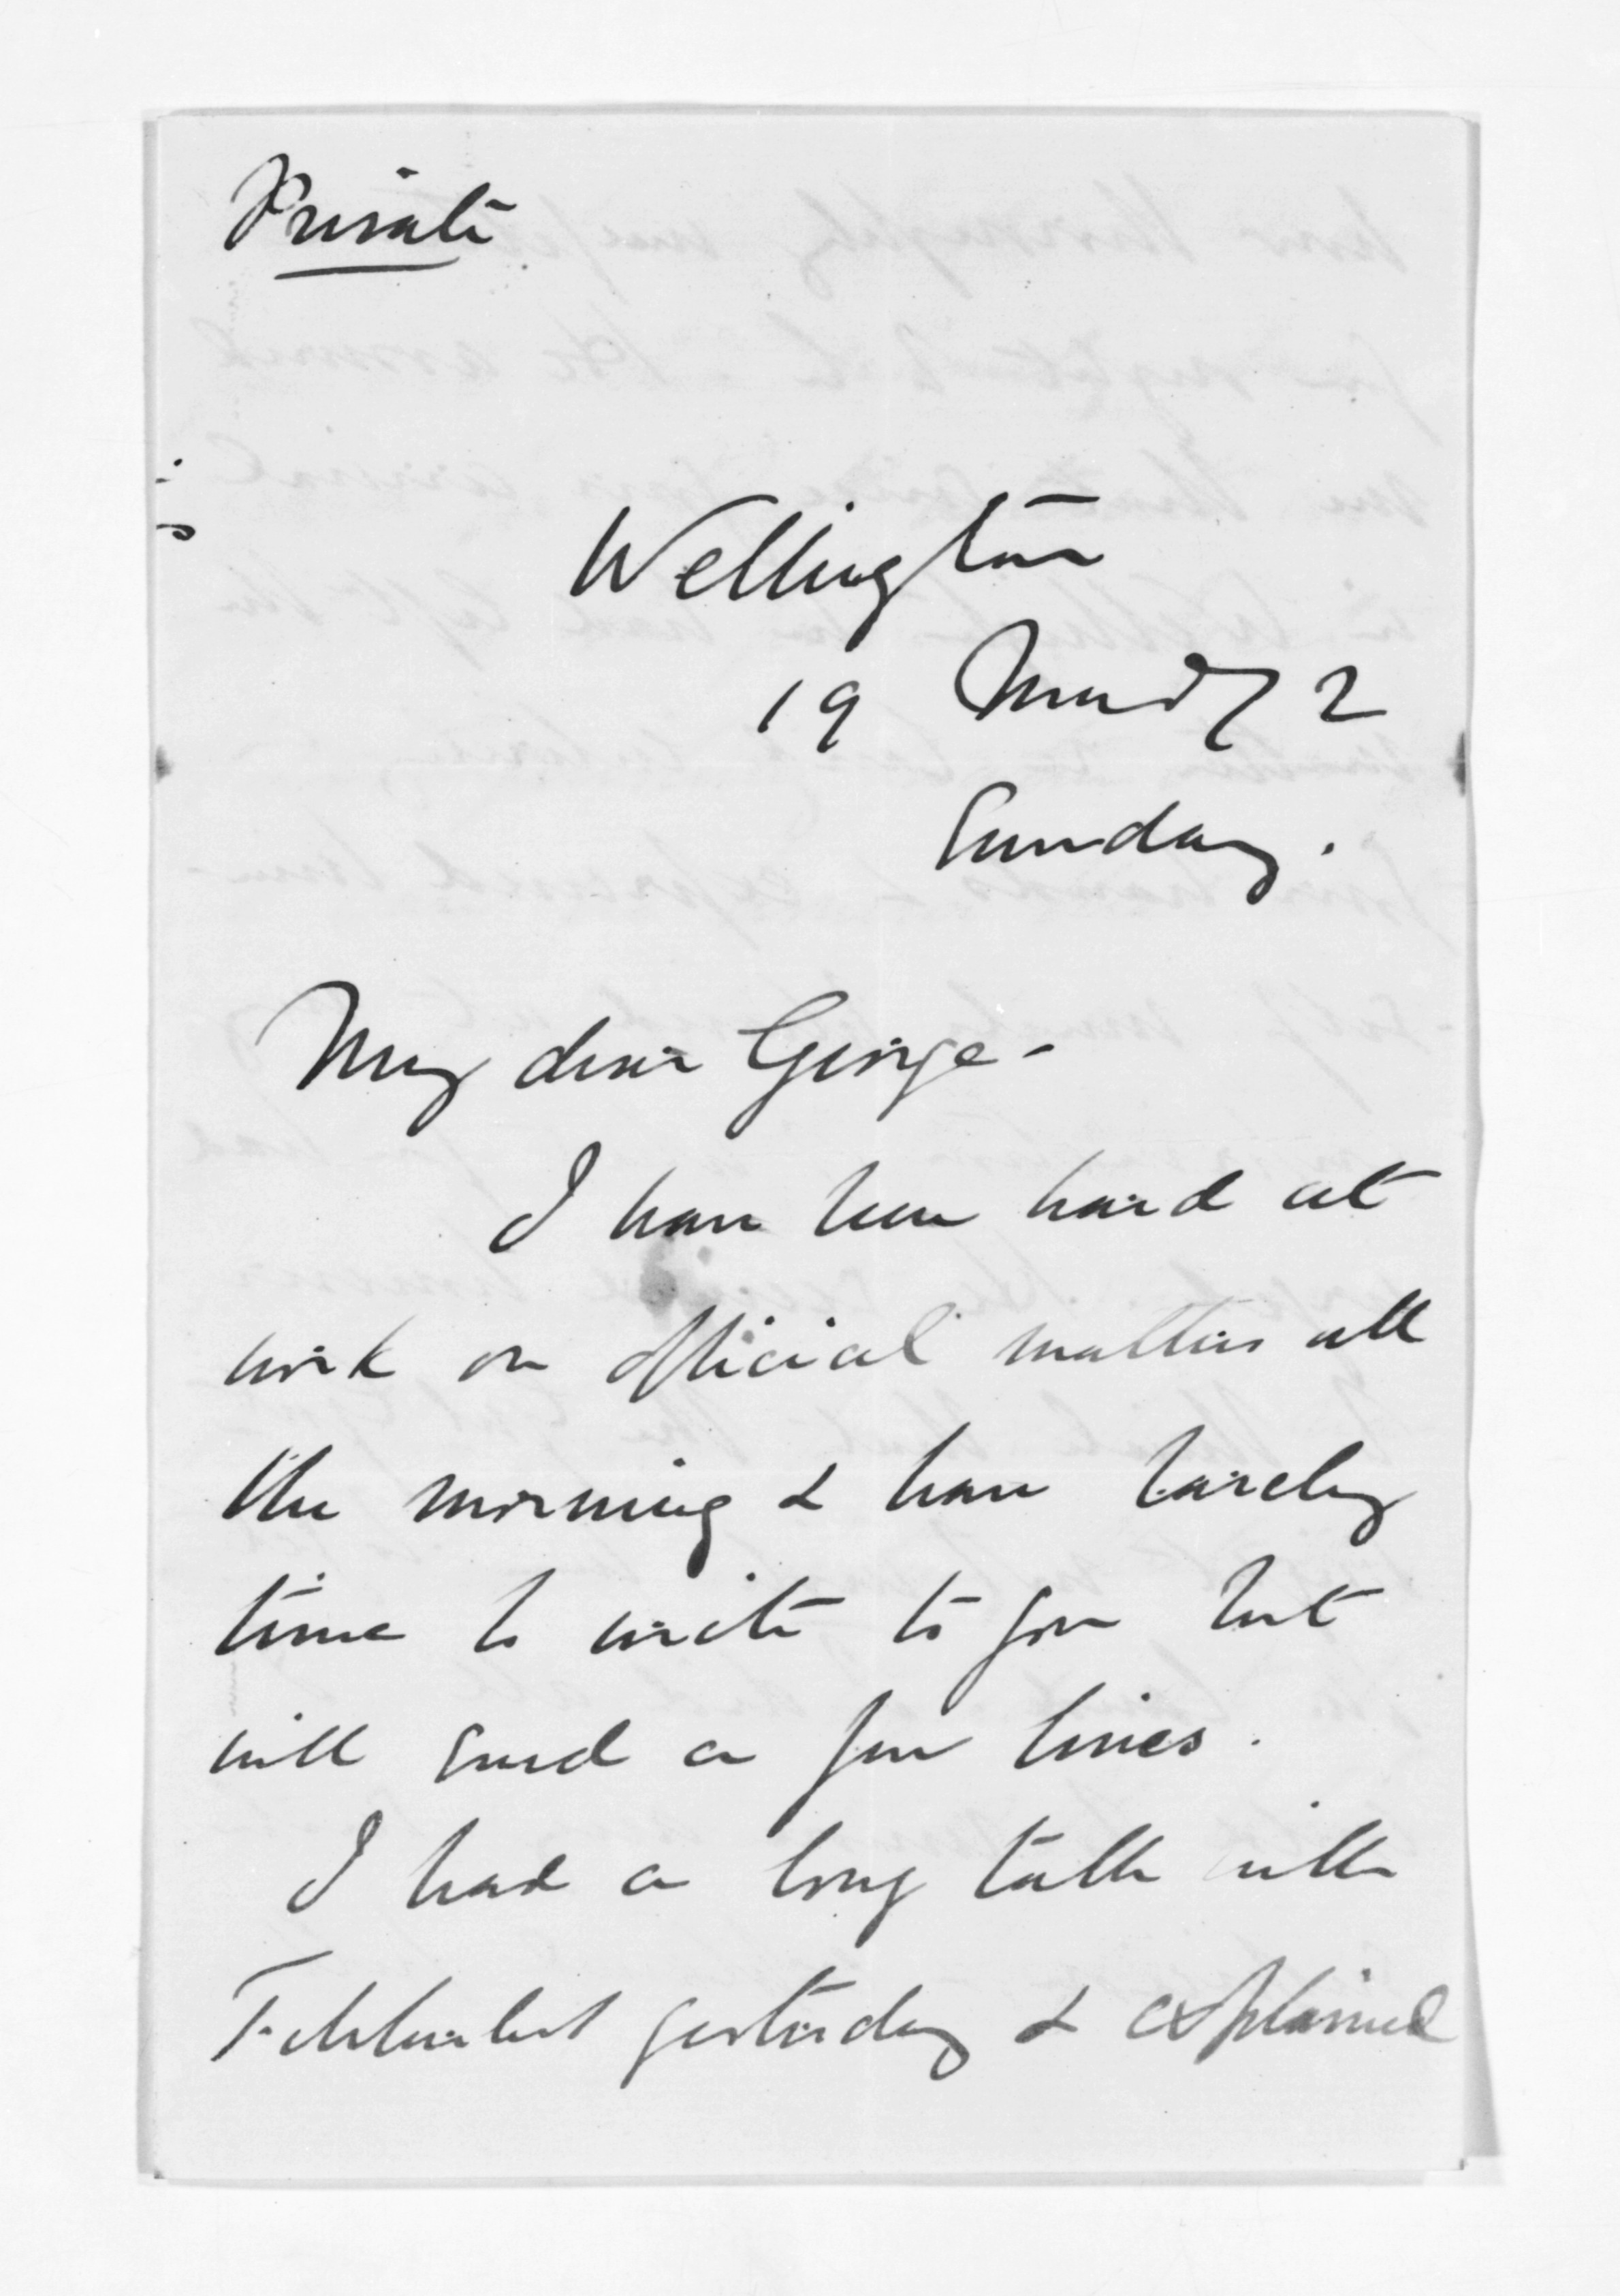 Private
Wellington
19 Mard 72
Sunday.
My dear George -
I have been hard at
work on official matters all
the morning & have barely
time to write to you but
will send a few lines.
I had a long talk with
Fitzherbert yesterday & explained